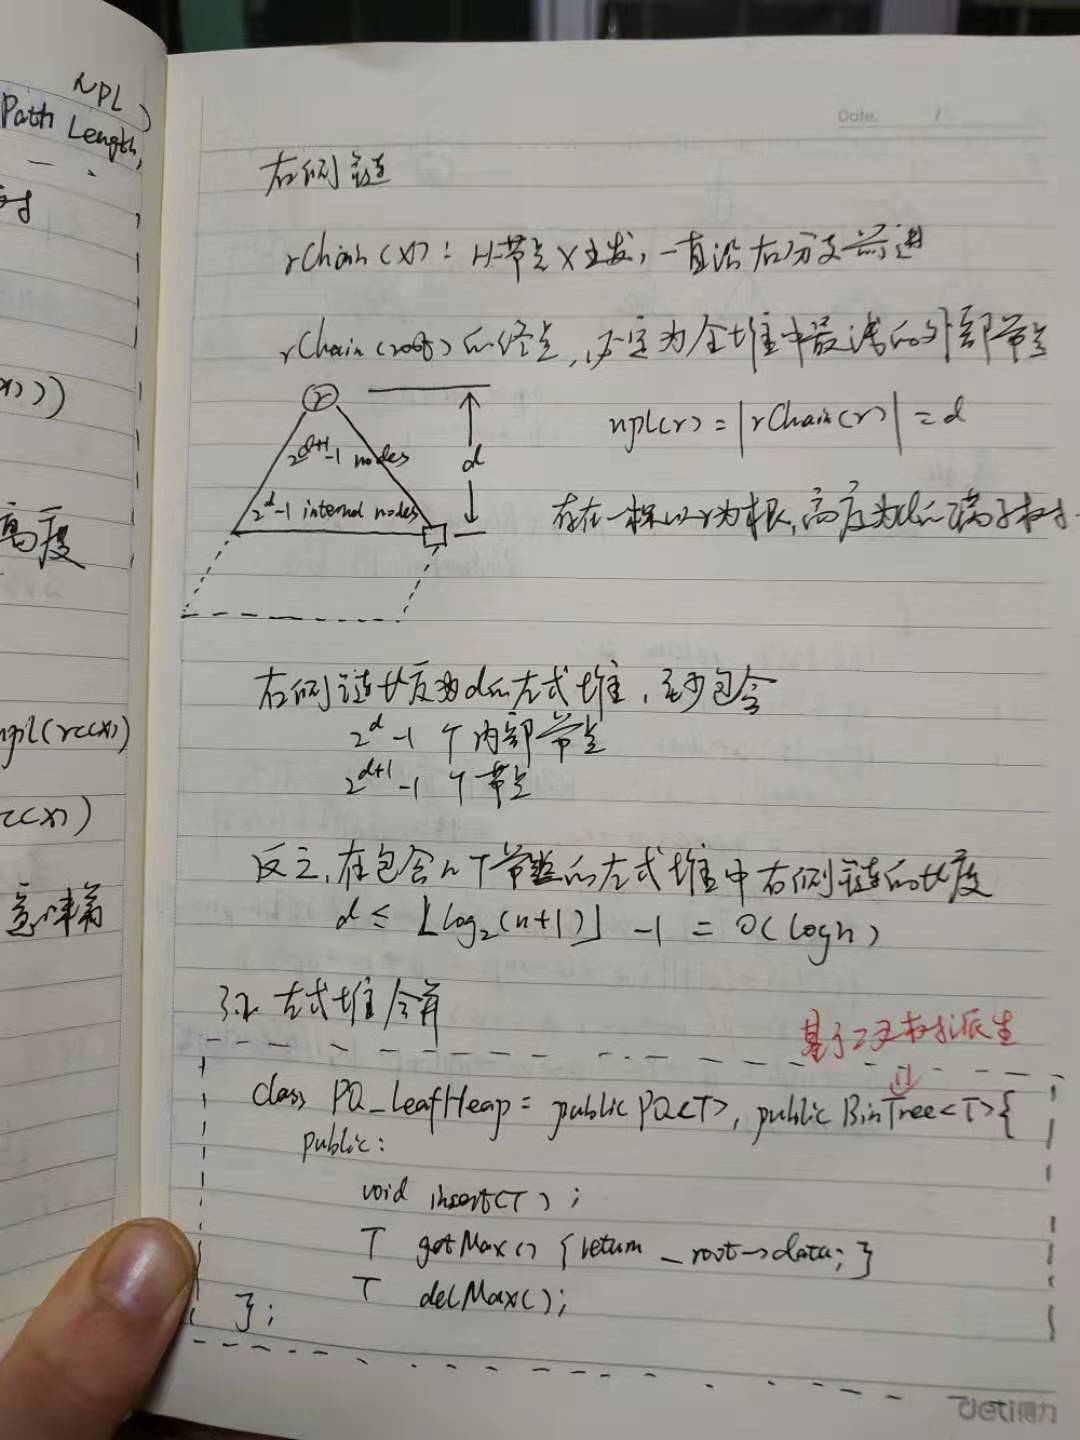 NPL)
Path Length,
高度
npl(rc(x))
rc(x))
意味着
Date. /
右侧链
rChain(x): 从节点x出发,一直沿右分支前进
rChain(root)的终点,必定为全堆中最浅的外部节点
r
2^{d+1}-1 nodes
d
npl(r) = |rChain(r)| = d
2^d-1 internal nodes
存在一棵以r为根,高度为d的满子树
右侧链长度为d的左式堆,至少包含
2^d-1 个内部节点
2^{d+1}-1 个节点
反之,在包含n个节点的左式堆中右侧链的长度
d ≤ ⌊log₂(n+1)⌋ -1 = O(logn)
3.2 左式堆合并
基于二叉树派生
class PQ_LeafHeap = public PQ<T>, public BinTree<T>{
public:
void insert(T);
T getMax() {return _root->data;}
T delMax();
};
deli得力